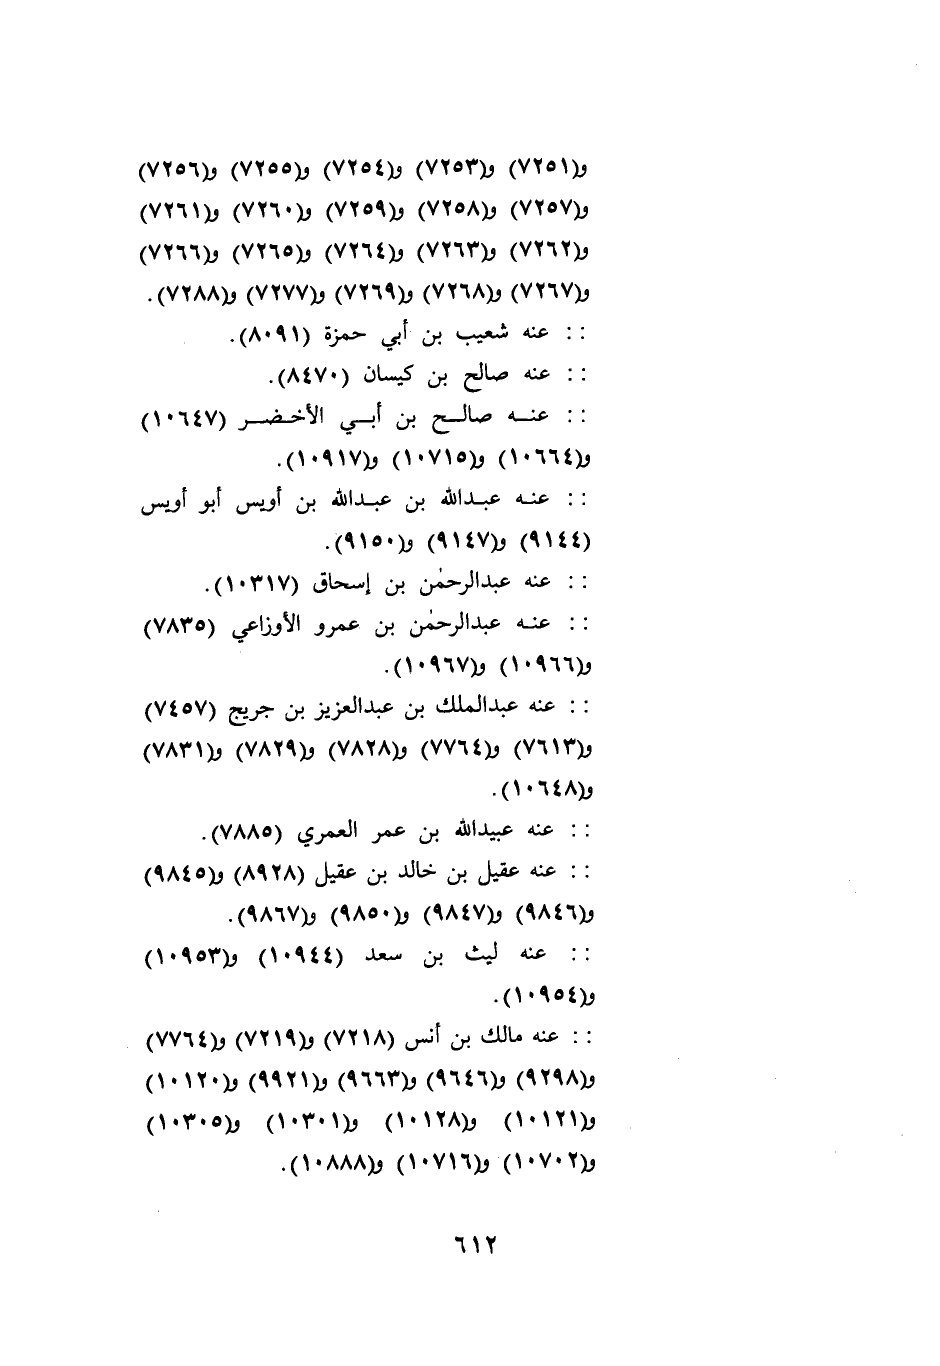 و(٧٢٥١) و(٧٢٥٣) و(٧٢٥٤) و(٧٢٥٥) و(٧٢٥٦)
و(٧٢٥٧) و(٧٢٥٨) و(٧٢٥٩) و(٧٢٦٠) و(٧٢٦١)
و(٧٢٦٢) و(٧٢٦٣) و(٧٢٦٤) و(٧٢٦٥) و(٧٢٦٦)
و(٧٢٦٧) و(٧٢٦٨) و(٧٢٦٩) و(٧٢٧٧) و(٧٢٨٨).
:: عنه شعيب بن أبي حمزة (٨٠٩١).
:: عنه صالح بن كيسان (٨٤٧٠).
:: عنــه صالــح بن أبــي الأخــضــر (١٠٦٤٧)
و(١٠٦٦٤) و(١٠٧١٥) و(١٠٩١٧).
:: عنـه عبـدالله بن عبـدالله بن أويس أبو أويس
(٩١٤٤) و(٩١٤٧) و(٩١٥٠).
:: عنه عبدالرحمٰن بن إسحاق (١٠٣١٧).
:: عنـه عبدالرحمٰن بن عمرو الأوزاعي (٧٨٣٥)
و(١٠٩٦٦) و(١٠٩٦٧).
:: عنه عبدالملك بن عبدالعزيز بن جريج (٧٤٥٧)
و(٧٦١٣) و(٧٧٦٤) و(٧٨٢٨) و(٧٨٢٩) و(٧٨٣١)
و(١٠٦٤٨).
:: عنه عبيدالله بن عمر العمري (٧٨٨٥).
:: عنه عقيل بن خالد بن عقيل (٨٩٢٨) و(٩٨٤٥)
و(٩٨٤٦) و(٩٨٤٧) و(٩٨٥٠) و(٩٨٦٧).
:: عنه ليث بن سعد (١٠٩٤٤) و(١٠٩٥٣)
و(١٠٩٥٤).
:: عنه مالك بن أنس (٧٢١٨) و(٧٢١٩) و(٧٧٦٤)
و(٩٢٩٨) و(٩٦٤٦) و(٩٦٦٣) و(٩٩٢١) و(١٠١٢٠)
و(١٠١٢١) و(١٠١٢٨) و(١٠٣٠١) و(١٠٣٠٥)
و(١٠٧٠٢) و(١٠٧١٦) و(١٠٨٨٨).
٦١٢